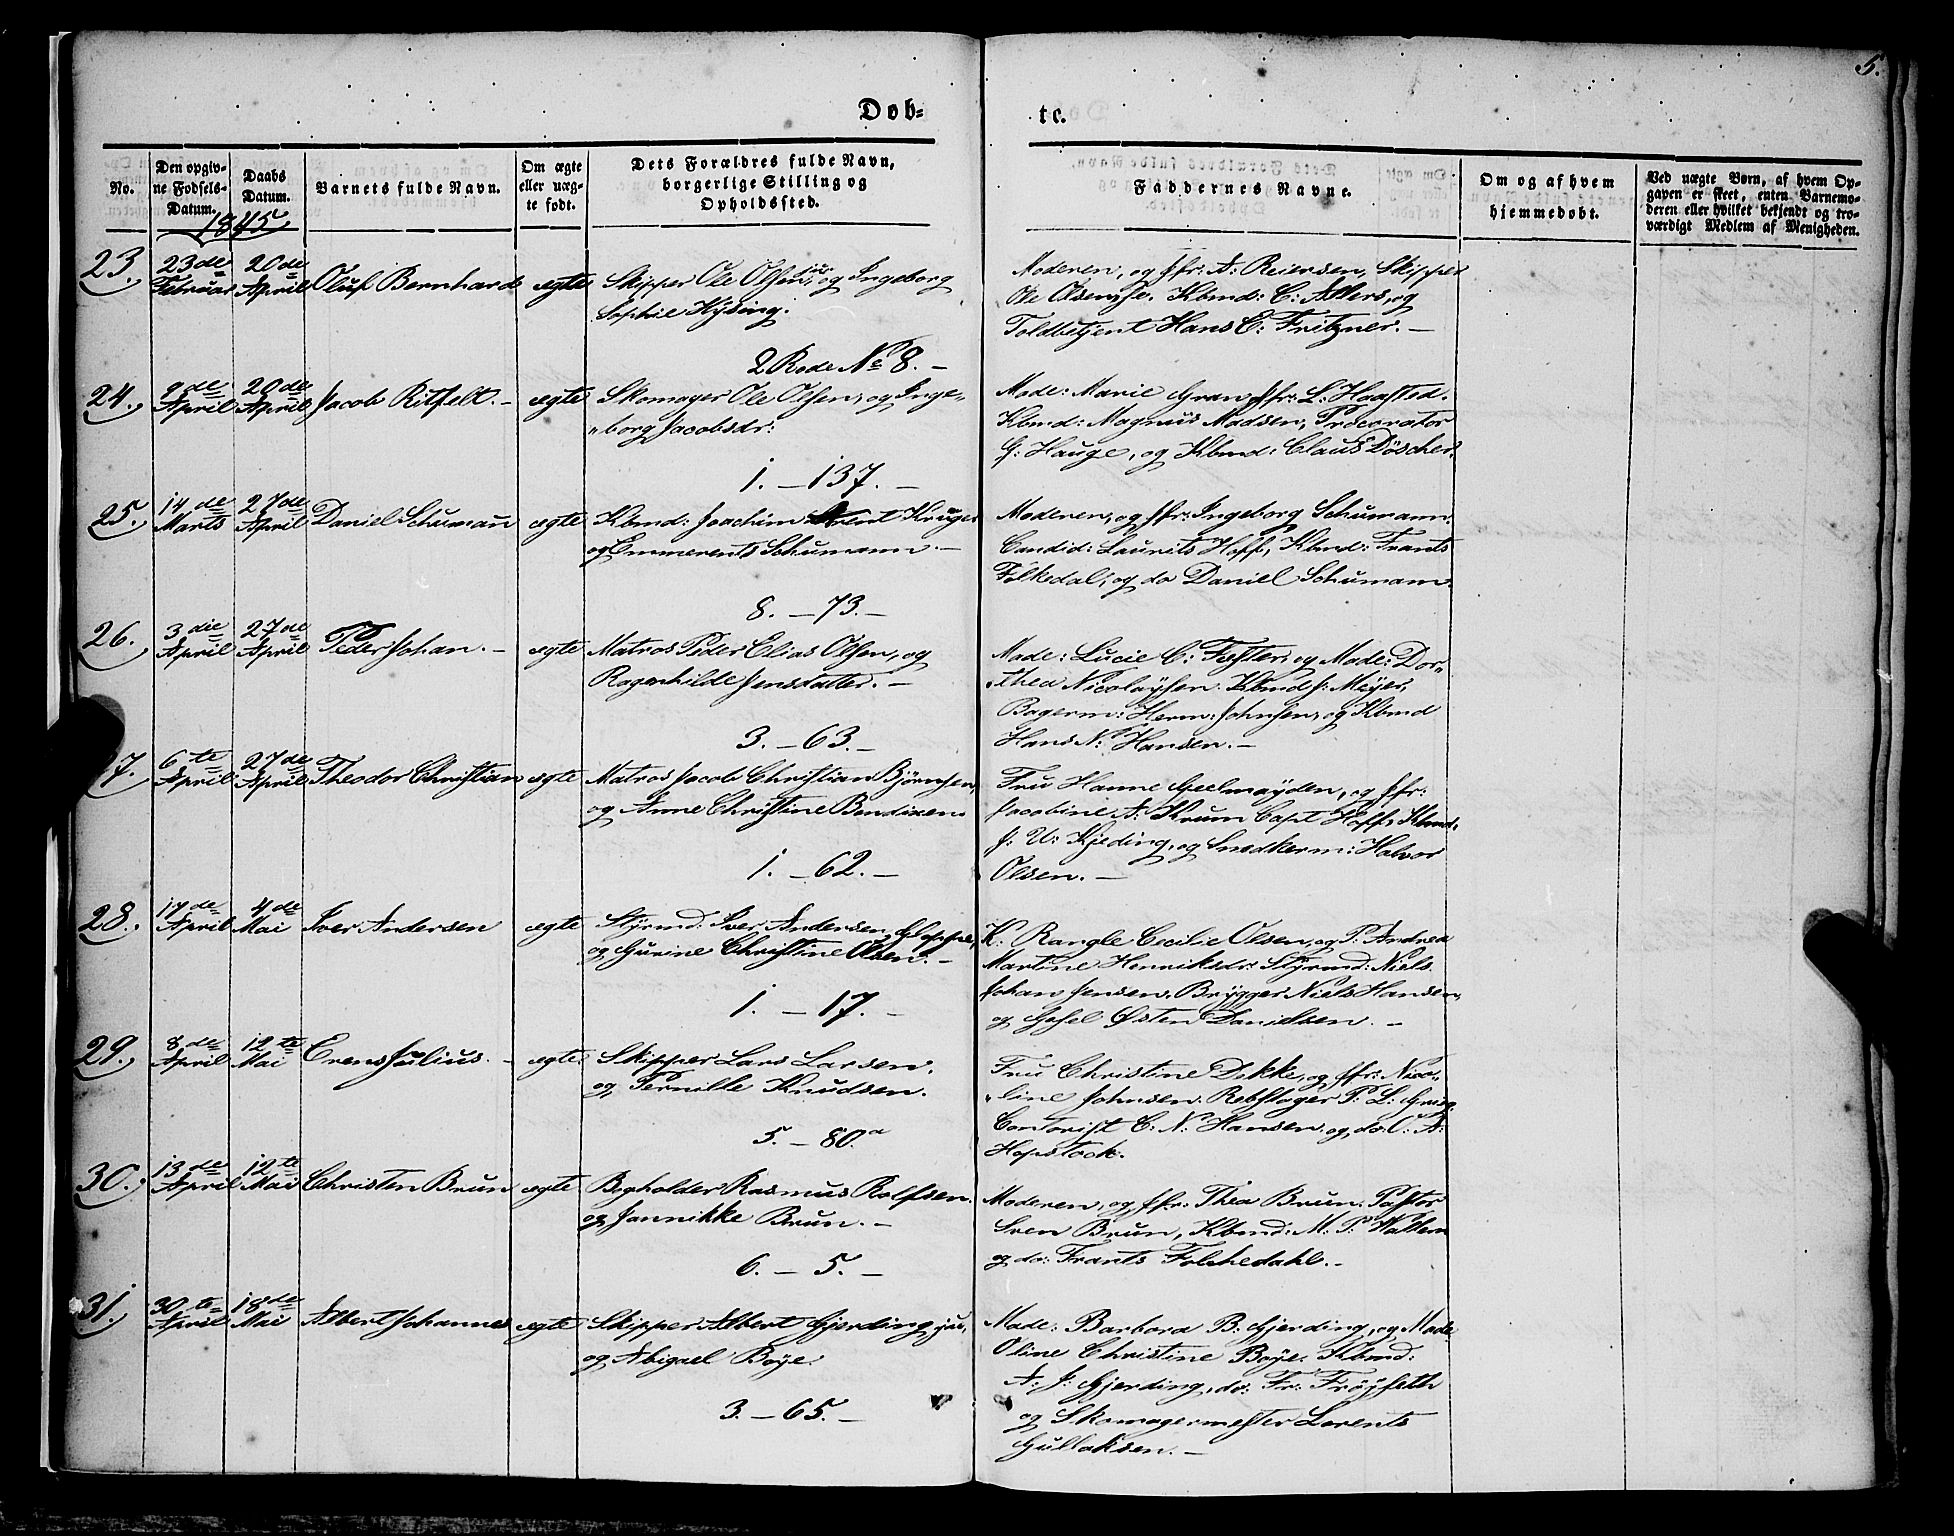 5.
Døb- te.
No.
Den opgiv-
ne Fødsels-
Datum.
Daabs
Datum.
Barnets fulde Navn.
Om ægte
eller uæg-
te født.
Dets Forældres fulde Navn,
borgerlige Stilling og
Opholdssted.
Faddernes Navne.
Om og af hvem
hjemmedøbt.
Ved uægte Børn, af hvem Op-
gaven er skeet, enten Barnemo-
deren eller hvilket bekjendt og tro-
værdigt Medlem af Menigheden.
1845
23. 23de Februar 20de April Oluf Bernhard ægte
Skipper Ole Olsen, jür og Ingeborg
Sophie Hysing.
2 Rode No 8. -
Moderen, og Jfr: A: Reiersen, Skipper
Ole Olsen, se. Kbmd: C: Ahlers, og
Toldbetjent Hans C: Fritzner. -
24. 9de April 20de April Jacob Ritfelt. - ægte
Skomager Ole Olsen, og Inge-
"borg Jacobsdr:
1. - 137. -
Made: Marie Gran, Jfr: L: Haasted.
Kbmd: Magnus Madsen, Procurator
G: Hauge, og Kbmd: Claus Döscher.
25. 14de Marts 27de April Daniel Schumann ægte
Kbmd: Joachim Arent Krüger
og Emmerents Schumann. -
8. - 73. -
Moderen, og Jfr: Ingeborg Schumann.
Candid: Laurits Hoff, Kbmd: Frants
Folkedal, og do Daniel Schumann.
26. 3die April 27de April Peder Johan. - ægte
Matros Peder Elias Olsen, og
Ragnhilde Jensdatter. -
3. - 63. -
Made: Lucie C: Faster, og Made: Dor-
"thea Nicolaysen. Kbmd J: Meyer,
Bagerm: Herm: Johnsen, og Kbmd
Hans N: Hansen. -
7. 6te April 27de April Theodor Christian ægte
Matros Jacob Christian Bjørnsen,
og Anne Christine Bendixen.
1. - 62. -
Fru Hanne Geelmuyden, og Jfr:
Jacobine A: Krum Capt Hoff, Kbmd:
J: U: Kjeding, og Snedkerm: Halvor
Olsen. -
28. 17de April 4de Mai Iver Andersen ægte
Styrmd: Iver Andersen Gloppe,
og Gurine Christine Olsen. -
1. - 17. -
K: Rangle Cecilie Olsen, og P: Andrea
Martine Henriksdr: Styrmd: Niels
Johan Jensen, Brygger Niels Hansen,
og Gesel Østen Danielsen. -
29. 8de April 12te Mai Erens Julius. - ægte
Skipper Lars Larsen,
og Pernille Knudsen.
5. - 80.a
Fru Christine Dekke, og Jfr: Nico-
"line Johnsen. Rebslager P: L: Grieg
Contorist C: N: Hansen, og do: C: A:
Hopstock.
30. 13de April 12te Mai Christen Brun ægte
Bogholder Rasmus Rolfsen.
og Jannikke Brun. -
6. - 5. -
Moderen, og Jfr: Thea Brun. Pastor
Sven Brun, Kbmd: M: P: Wallem
og do: Frants Folchedahl. -
31. 30te April 18de Mai Albert Johannes ægte
Skipper Albert Gjerding, jür,
og Abigael Boye.
3. - 65. -
Made: Barbora B: Gjerding, og Made
Oline Christine Boye. Kbmd:
A: J: Gjerding, do: Fr: Frøyseth
og Skomagermester Lorents
Gullaksen. -